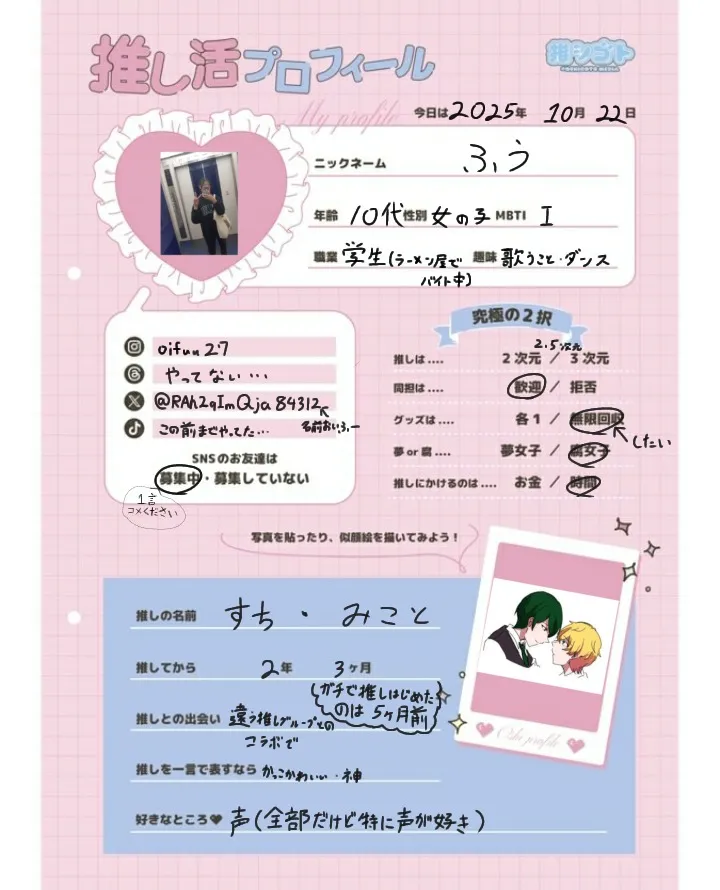 推し活プロフィール
推シゴト
My profile
今日は 2025年 10月 22日
ニックネーム ふう
年齢 10代 性別 女の子 MBTI I
職業 学生(ラーメン屋でバイト中) 趣味 歌うこと・ダンス
oifuu27
やってない…
@RAh2qImQja84312
名前おいふぅー
この前までやってた…
SNSのお友達は
募集中・募集していない
1言
コメください
究極の2択
2.5次元
推しは…. 2次元 / 3次元
同担は…. 歓迎 / 拒否
グッズは…. 各1 / 無限回収
したい
夢or腐…. 夢女子 / 腐女子
推しにかけるのは…. お金 / 時間
写真を貼ったり、似顔絵を描いてみよう!
推しの名前 すち・みこと
推してから 2年 3ヶ月
ガチで推しはじめた
のは 5ヶ月前
推しとの出会い 違う推しグループとの
コラボで
推しを一言で表すなら かっこかわいい・神
好きなところ 声(全部だけど特に声が好き)
Oshi profile